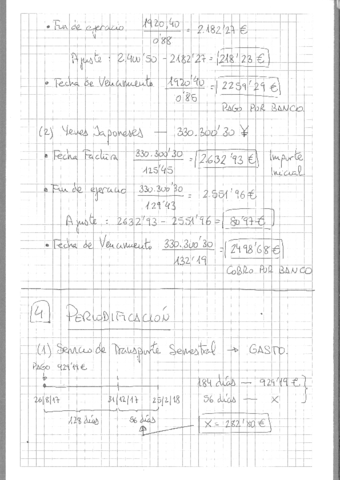 • Fin de ejercicio 1920,40 / 0'88 = 2.182'27 €
Ajuste: 2.400'50 - 2182'27 = 218'23 €
• Fecha de Vencimiento 1920'40 / 0'85 = 2259'29 €
PAGO POR BANCO
(2) Yenes Japoneses — 330.300'30 ¥
• Fecha Factura 330.300'30 / 125'45 = 2632'93 € Importe Inicial
• Fin de ejercicio 330.300'30 / 129'43 = 2.551'96 €
Ajuste: 2632'93 - 2551'96 = 80'97 €
• Fecha de Vencimiento 330.300'30 / 132'19 = 2498'68 €
COBRO POR BANCO
4 PERIODIFICACIÓN
(1) Servicio de Transporte Semestral → GASTO.
PAGO 929'19 €
184 días — 929'19 €
56 días — x
26/8/17 31/12/17 25/2/18
128 días 56 días
x = 282'80 €